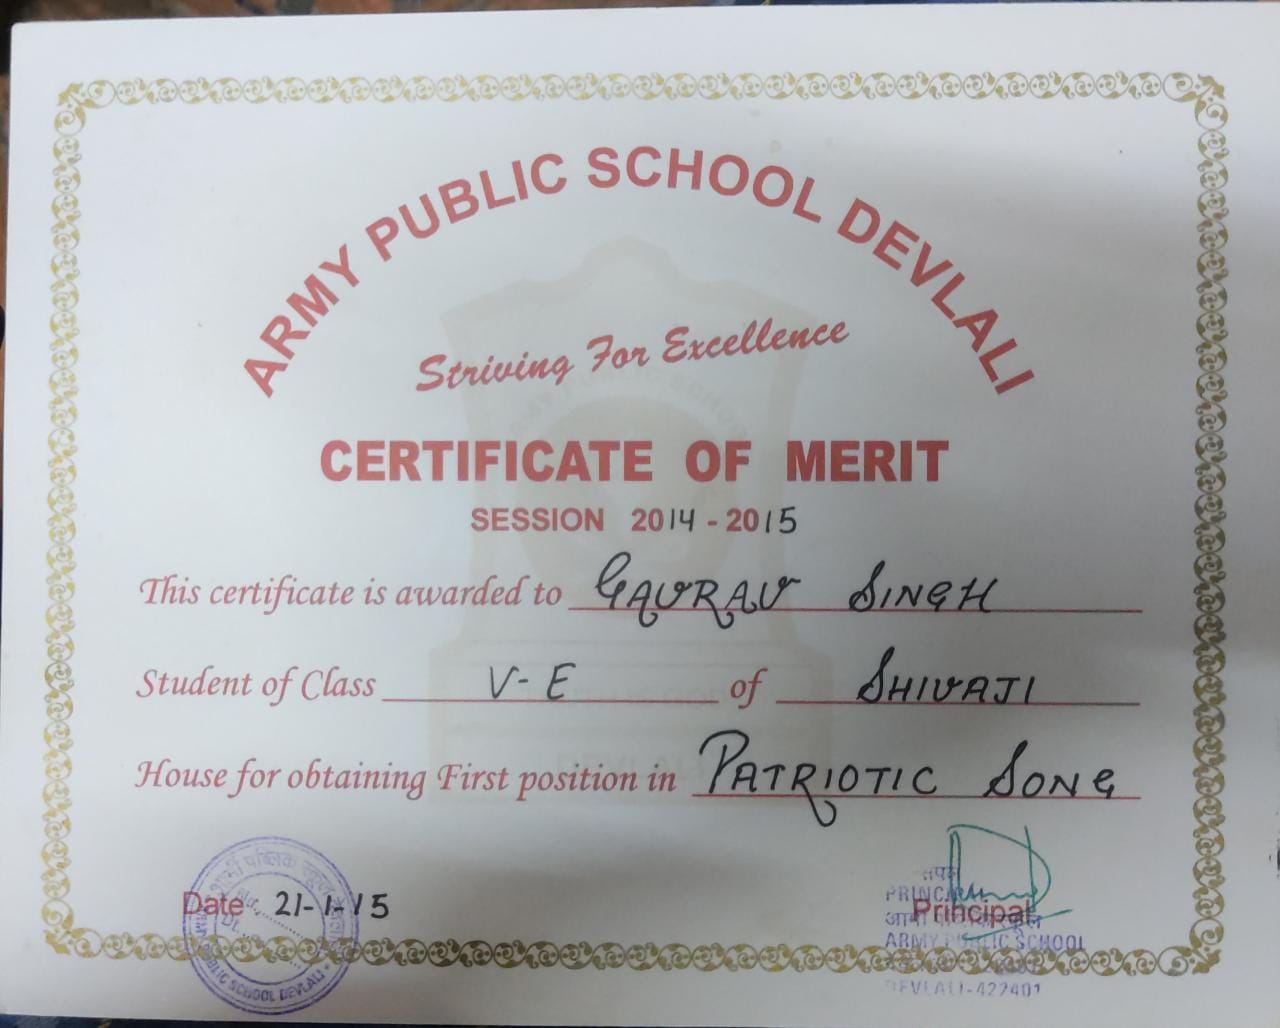 ARMY PUBLIC SCHOOL DEVLALI
Striving For Excellence
CERTIFICATE OF MERIT
SESSION 2014 - 2015
This certificate is awarded to GAURAV SINGH
Student of Class V-E of SHIVAJI
House for obtaining First position in PATRIOTIC SONG
Date 21-1-15
आर्मी पब्लिक स्कूल
No.
Dt.
PUBLIC SCHOOL DEVLALI
Principal
ARMY PUBLIC SCHOOL
DEVLALI-422401